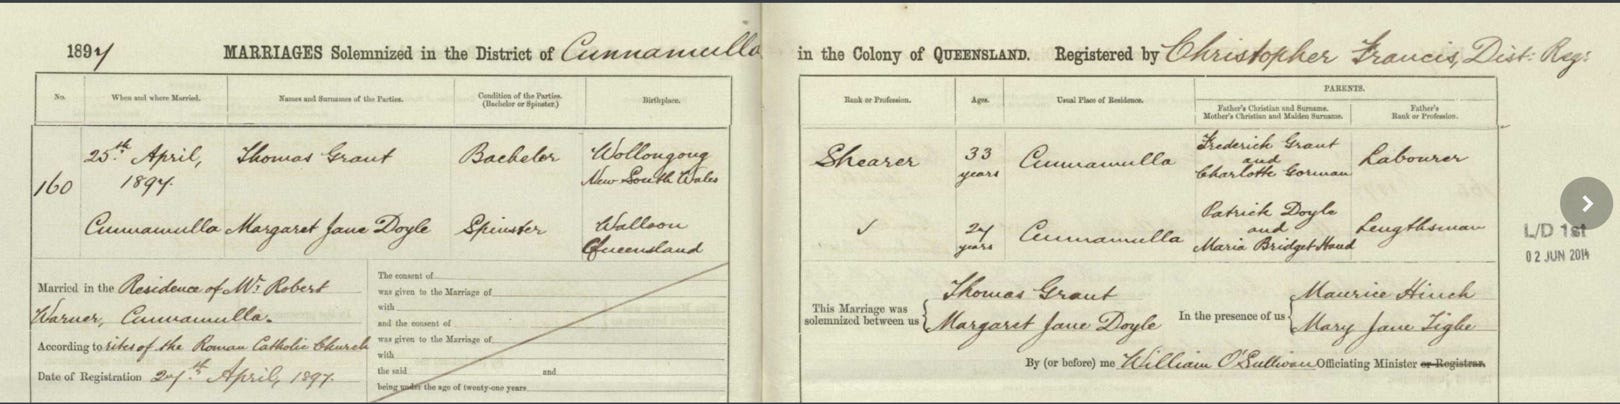 1897 MARRIAGES Solemnized in the District of Cunnamulla in the Colony of QUEENSLAND. Registered by Christopher Francis, Dist: Reg:
No. When and where Married. Names and Surnames of the Parties. Condition of the Parties. (Bachelor or Spinster.) Birthplace.
160
25th April, 1897.
Thomas Grant
Bachelor
Wollongong
New South Wales
Cunnamulla
Margaret Jane Doyle
Spinster
Walloon
Queensland
Married in the Residence of Mr. Robert
Warner, Cunnamulla.
According to rites of the Roman Catholic Church
Date of Registration 27th April, 1897.
The consent of
was given to the Marriage of
with
and the consent of
was given to the Marriage of
with
the said and
being under the age of twenty-one years
Rank or Profession. Ages. Usual Place of Residence.
PARENTS.
Father's Christian and Surname.
Mother's Christian and Maiden Surname.
Father's
Rank or Profession.
Shearer
33
years
Cunnamulla
Frederick Grant
and
Charlotte Gorman
Labourer
✓
24
years
Cunnamulla
Patrick Doyle
and
Maria Bridget
Lengthsman
This Marriage was
solemnized between us
Thomas Grant
Margaret Jane Doyle
In the presence of us
Maurice Hinch
Mary Jane Tighe
By (or before) me William O'Sullivan Officiating Minister or Registrar.
L/D 1st
02 JUN 2014